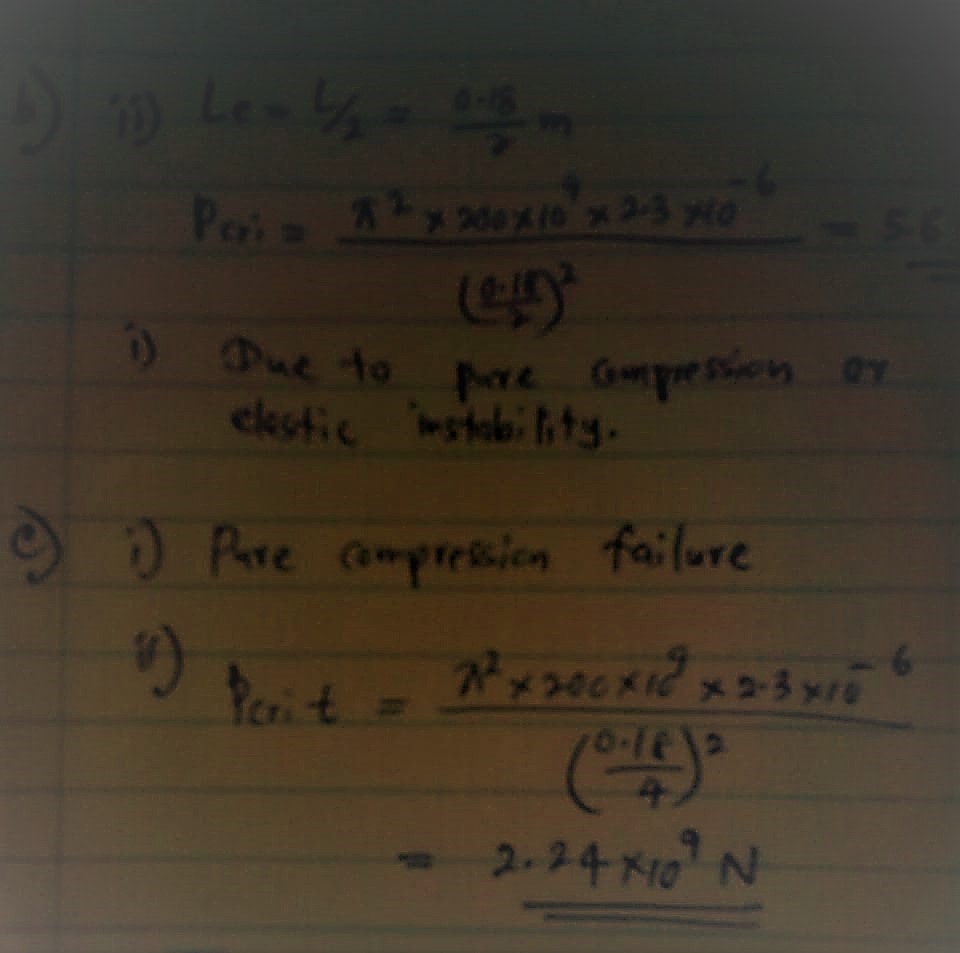 b) ii) Le = L/2 = 0.18/2 m
Pcri = π² × 200×10⁹ × 2.3 ×10⁻⁶ / (0.18/2)² = 5.6
i) Due to pure compression or
elastic instability.
c) i) Pure compression failure
ii) Pcrit = π² × 200 ×10⁹ × 2.3 ×10⁻⁶ / (0.18/4)²
= 2.24 ×10⁹ N